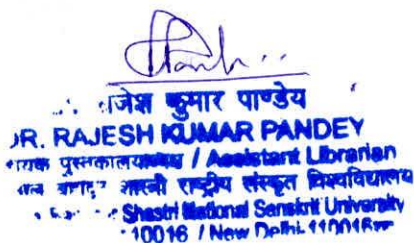 राजेश कुमार पाण्डेय
DR. RAJESH KUMAR PANDEY
पुस्तकालयाध्यक्ष / Assistant Librarian
शास्त्री राष्ट्रीय संस्कृत विश्वविद्यालय
Shastri National Sanskrit University
110016 / New Delhi-110016